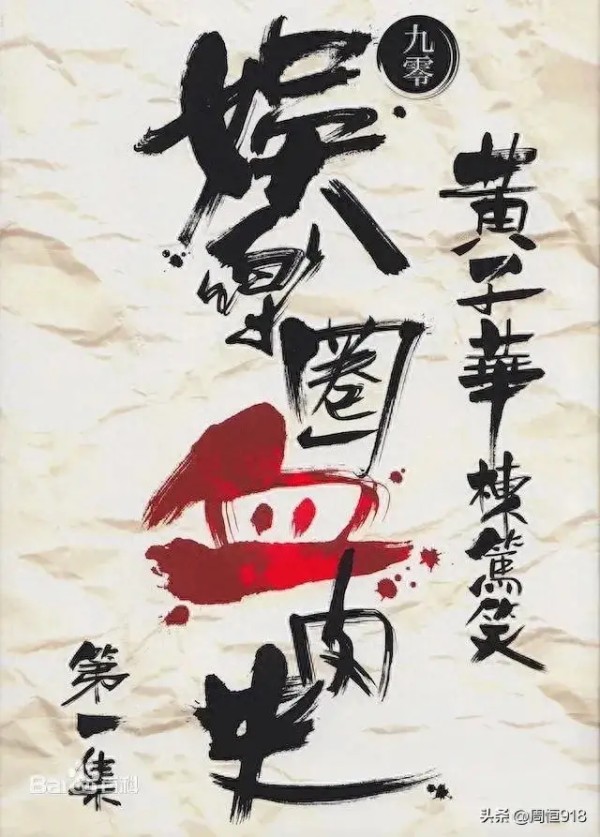 九零
娛樂圈血肉史
黃子華棟篤笑
第一集
Bai百科
头条 @周恒918